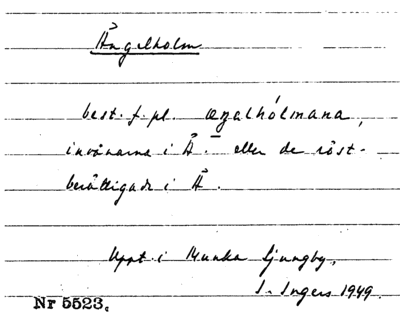 Ängelholm
best. f. pl. œŋalhólmana,
invånarna i Ä. eller de röst-
berättigade i Ä.
Uppt. i Munka Ljungby.
I. Ingers 1949.
Nr 5523.